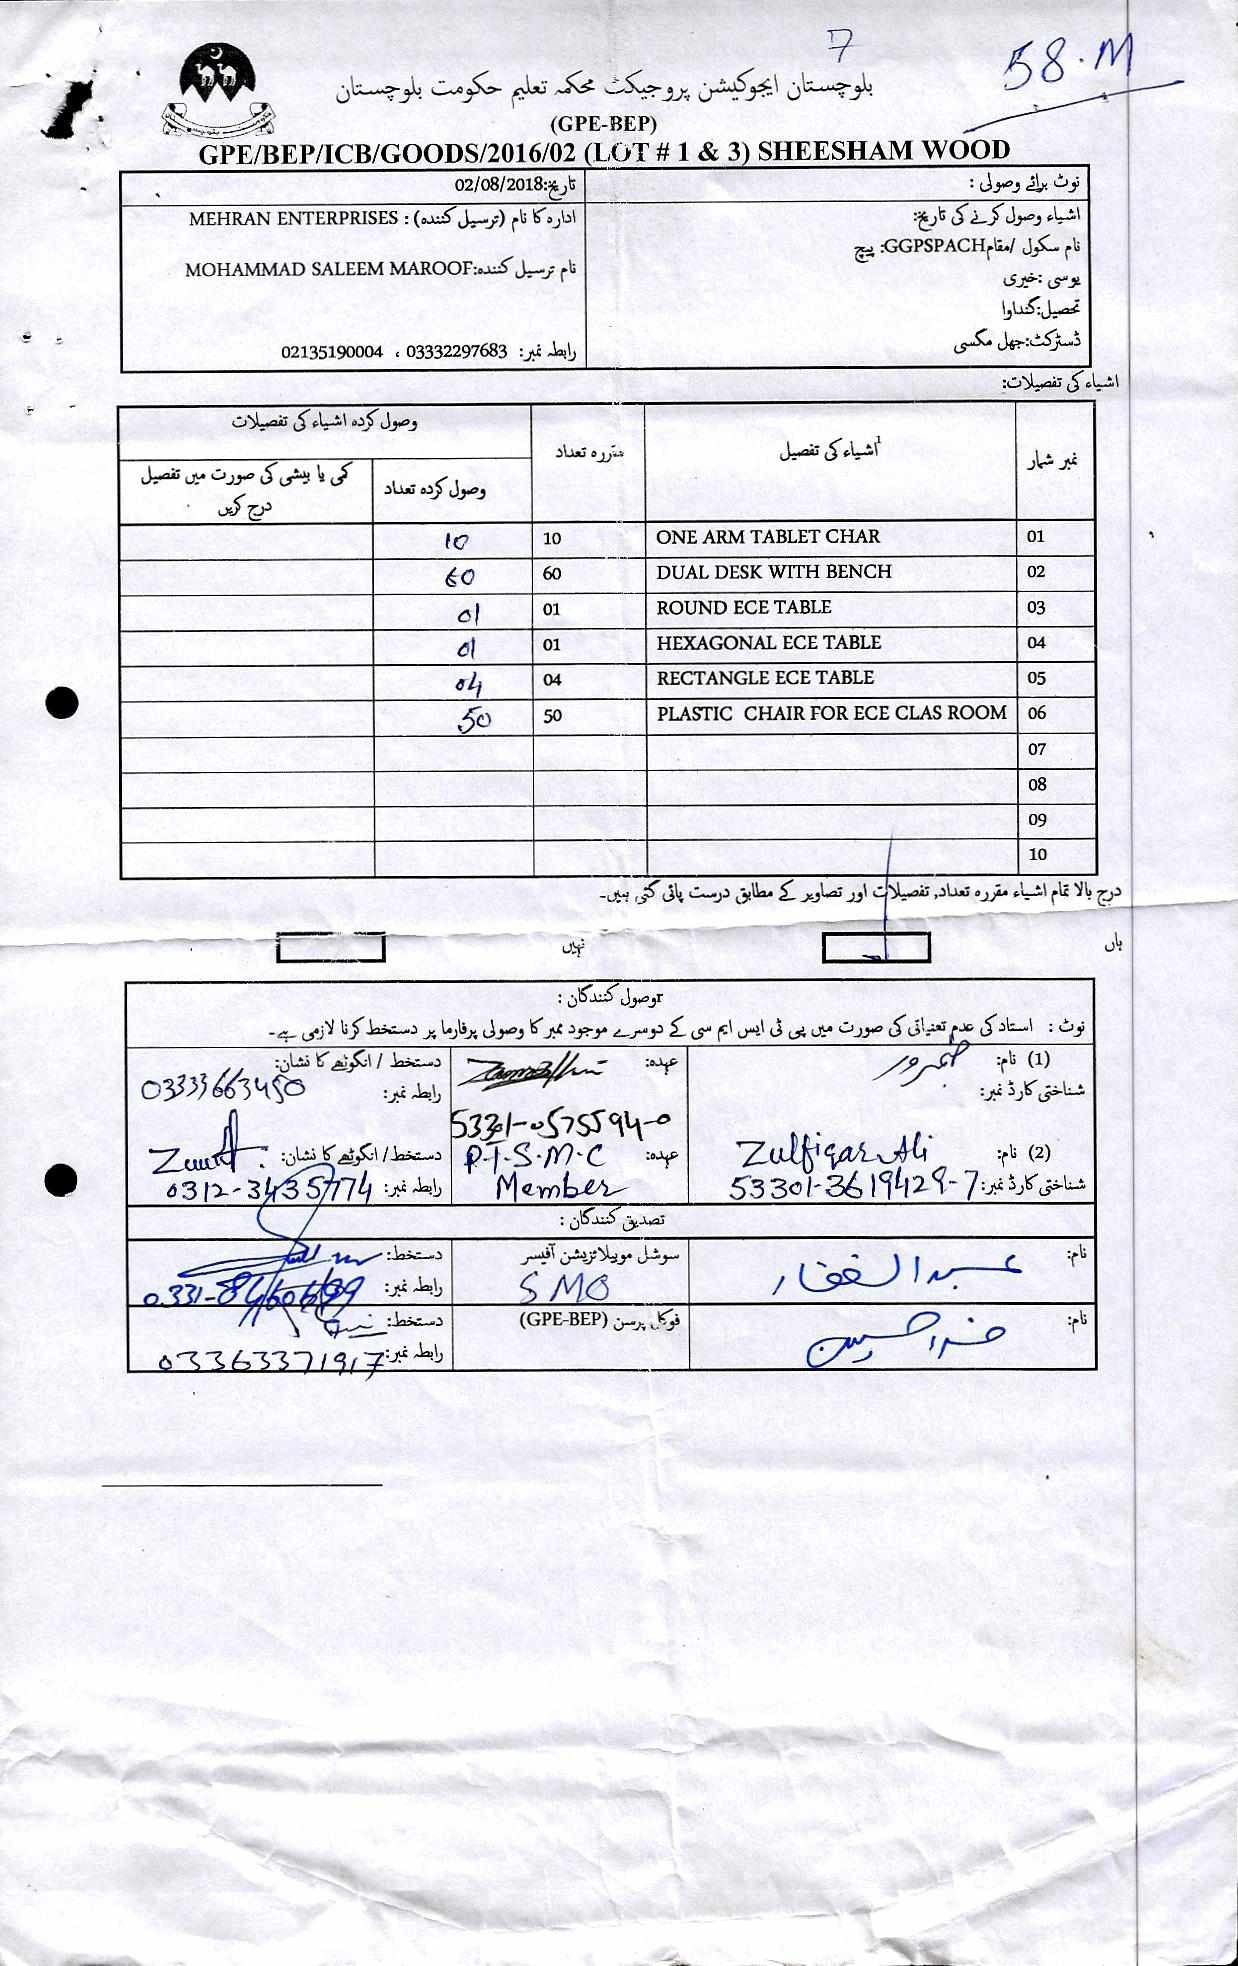 7
58.M
بلوچستان ایجوکیشن پروجیکٹ محکمہ تعلیم حکومت بلوچستان
(GPE-BEP)
GPE/BEP/ICB/GOODS/2016/02 (LOT # 1 & 3) SHEESHAM WOOD
نوٹ برائے وصولی :
تاریخ:02/08/2018
اشیاء وصول کرنے کی تاریخ:
ادارہ کا نام (ترسیل کنندہ) : MEHRAN ENTERPRISES
نام سکول /مقامGGPSPACH: پیچ
نام ترسیل کنندہ:MOHAMMAD SALEEM MAROOF
یوسی :خیری
تحصیل:گنداوا
ڈسٹرکٹ:جھل مگسی
رابطہ نمبر: 03332297683 ، 02135190004
اشیاء کی تفصیلات:
نمبر شمار اشیاء کی تفصیل مقررہ تعداد وصول کردہ اشیاء کی تفصیلات
وصول کردہ تعداد کمی یا بیشی کی صورت میں تفصیل درج کریں
01 ONE ARM TABLET CHAR 10 10
02 DUAL DESK WITH BENCH 60 60
03 ROUND ECE TABLE 01 01
04 HEXAGONAL ECE TABLE 01 01
05 RECTANGLE ECE TABLE 04 04
06 PLASTIC CHAIR FOR ECE CLAS ROOM 50 50
07
08
09
10
درج بالا تمام اشیاء مقررہ تعداد, تفصیلات اور تصاویر کے مطابق درست پائی گئی ہیں۔
ہاں نہیں
وصول کنندگان :
نوٹ : استاد کی عدم تعیناتی کی صورت میں پی ٹی ایس ایم سی کے دوسرے موجود ممبر کا وصولی پرفارما پر دستخط کرنا لازمی ہے۔
(1) نام: عہدہ: دستخط / انگوٹھے کا نشان:
شناختی کارڈ نمبر: رابطہ نمبر: 03333663450
53301-0575594-0
(2) نام: Zulfiqar Ali عہدہ: P.T.S.M.C دستخط / انگوٹھے کا نشان:
شناختی کارڈ نمبر: 53301-3619429-7 Member رابطہ نمبر: 0312-3435774
تصدیق کنندگان :
نام: عبدالغفار سوشل موبیلائزیشن آفیسر دستخط:
SMO رابطہ نمبر:
نام: فوکل پرسن (GPE-BEP) دستخط:
رابطہ نمبر: 03363371917